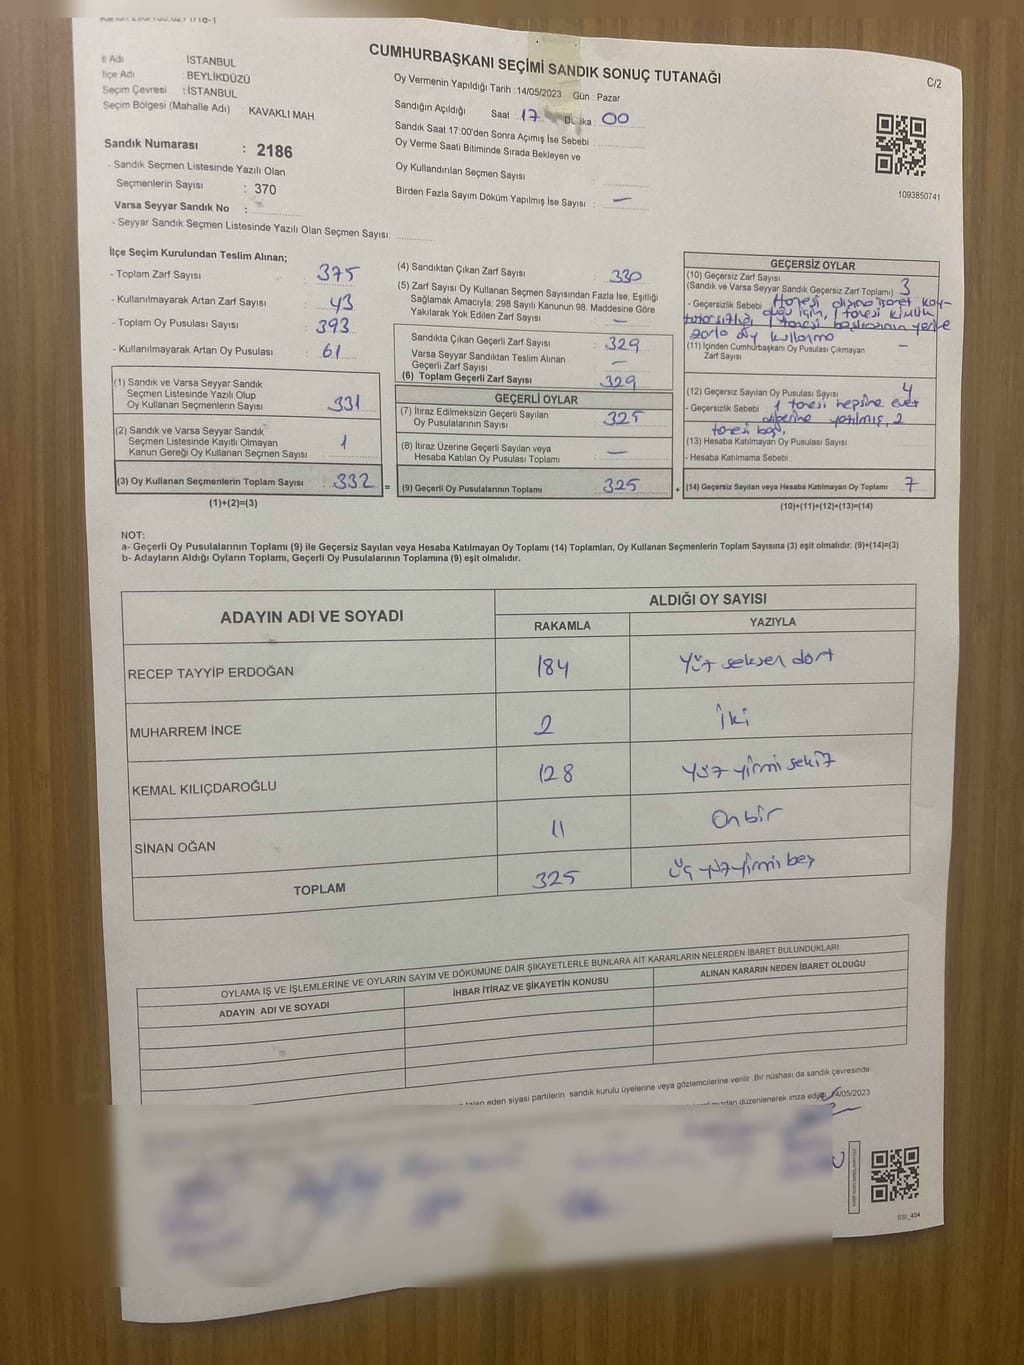 İl Adı İSTANBUL
İlçe Adı : BEYLİKDÜZÜ
Seçim Çevresi : İSTANBUL
Seçim Bölgesi (Mahalle Adı) : KAVAKLI MAH
CUMHURBAŞKANI SEÇİMİ SANDIK SONUÇ TUTANAĞI
C/2
Oy Vermenin Yapıldığı Tarih : 14/05/2023 Gün : Pazar
Sandığın Açıldığı Saat : 17 Dakika : 00
Sandık Saat 17:00'den Sonra Açımış İse Sebebi :
Oy Verme Saati Bitiminde Sırada Bekleyen ve
Oy Kullandırılan Seçmen Sayısı :
Birden Fazla Sayım Döküm Yapılmış İse Sayısı : —
1093850741
Sandık Numarası : 2186
- Sandık Seçmen Listesinde Yazılı Olan
Seçmenlerin Sayısı : 370
Varsa Seyyar Sandık No :
- Seyyar Sandık Seçmen Listesinde Yazılı Olan Seçmen Sayısı:
İlçe Seçim Kurulundan Teslim Alınan;
- Toplam Zarf Sayısı : 375
- Kullanılmayarak Artan Zarf Sayısı : 43
- Toplam Oy Pusulası Sayısı : 393
- Kullanılmayarak Artan Oy Pusulası : 61
(1) Sandık ve Varsa Seyyar Sandık
Seçmen Listesinde Yazılı Olup
Oy Kullanan Seçmenlerin Sayısı : 331
(2) Sandık ve Varsa Seyyar Sandık
Seçmen Listesinde Kayıtlı Olmayan
Kanun Gereği Oy Kullanan Seçmen Sayısı : 1
(3) Oy Kullanan Seçmenlerin Toplam Sayısı : 332 =
(1)+(2)=(3)
(4) Sandıktan Çıkan Zarf Sayısı : 330
(5) Zarf Sayısı Oy Kullanan Seçmen Sayısından Fazla İse, Eşitliği
Sağlamak Amacıyla; 298 Sayılı Kanunun 98. Maddesine Göre
Yakılarak Yok Edilen Zarf Sayısı : —
Sandıkta Çıkan Geçerli Zarf Sayısı : 329
Varsa Seyyar Sandıktan Teslim Alınan
Geçerli Zarf Sayısı : —
(6) Toplam Geçerli Zarf Sayısı : 329
GEÇERLİ OYLAR
(7) İtiraz Edilmeksizin Geçerli Sayılan
Oy Pusulalarının Sayısı : 325
(8) İtiraz Üzerine Geçerli Sayılan veya
Hesaba Katılan Oy Pusulası Toplamı : —
(9) Geçerli Oy Pusulalarının Toplamı : 325 +
GEÇERSİZ OYLAR
(10) Geçersiz Zarf Sayısı
(Sandık ve Varsa Seyyar Sandık Geçersiz Zarf Toplamı) : 3
- Geçersizlik Sebebi : 1 tanesi dışına işaret koy-
duğu için, 1 tanesi kimlik
1 tanesi başkasının yerine
zorla oy kullanma
(11) İçinden Cumhurbaşkanı Oy Pusulası Çıkmayan
Zarf Sayısı —
(12) Geçersiz Sayılan Oy Pusulası Sayısı : 4
- Geçersizlik Sebebi : 1 tanesi hepsine evet
diğerine yırtılmış, 2
tanesi boş.
(13) Hesaba Katılmayan Oy Pusulası Sayısı
- Hesaba Katılmama Sebebi :
(14) Geçersiz Sayılan veya Hesaba Katılmayan Oy Toplamı : 7
(10)+(11)+(12)+(13)=(14)
NOT:
a- Geçerli Oy Pusulalarının Toplamı (9) ile Geçersiz Sayılan veya Hesaba Katılmayan Oy Toplamı (14) Toplamları, Oy Kullanan Seçmenlerin Toplam Sayısına (3) eşit olmalıdır. (9)+(14)=(3)
b- Adayların Aldığı Oyların Toplamı, Geçerli Oy Pusulalarının Toplamına (9) eşit olmalıdır.
ADAYIN ADI VE SOYADI
ALDIĞI OY SAYISI
RAKAMLA YAZIYLA
RECEP TAYYİP ERDOĞAN 184 Yüz seksen dört
MUHARREM İNCE 2 İki
KEMAL KILIÇDAROĞLU 128 Yüz yirmi sekiz
SİNAN OĞAN 11 On bir
TOPLAM 325 Üç yüz yirmi beş
OYLAMA İŞ VE İŞLEMLERİNE VE OYLARIN SAYIM VE DÖKÜMÜNE DAİR ŞİKAYETLERLE BUNLARA AİT KARARLARIN NELERDEN İBARET BULUNDUKLARI
ADAYIN ADI VE SOYADI İHBAR İTİRAZ VE ŞİKAYETİN KONUSU ALINAN KARARIN NEDEN İBARET OLDUĞU
talep eden siyasi partilerin sandık kurulu üyelerine veya gözlemcilerine verilir. Bir nüshası da sandık çevresinde
düzenlenerek imza edildi 14/05/2023
SSI_404